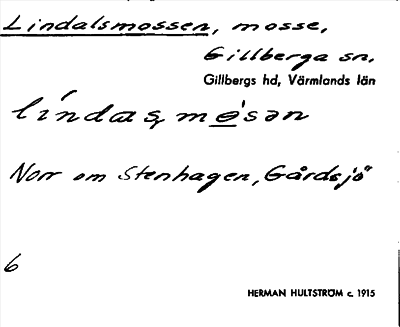 Lindalsmossen, mosse,
Gillberga sn.
Gillbergs hd, Värmlands län
líndaꞩ mo̲´sən
Norr om Stenhagen, Gårdsjö
6
HERMAN HULTSTRÖM c. 1915